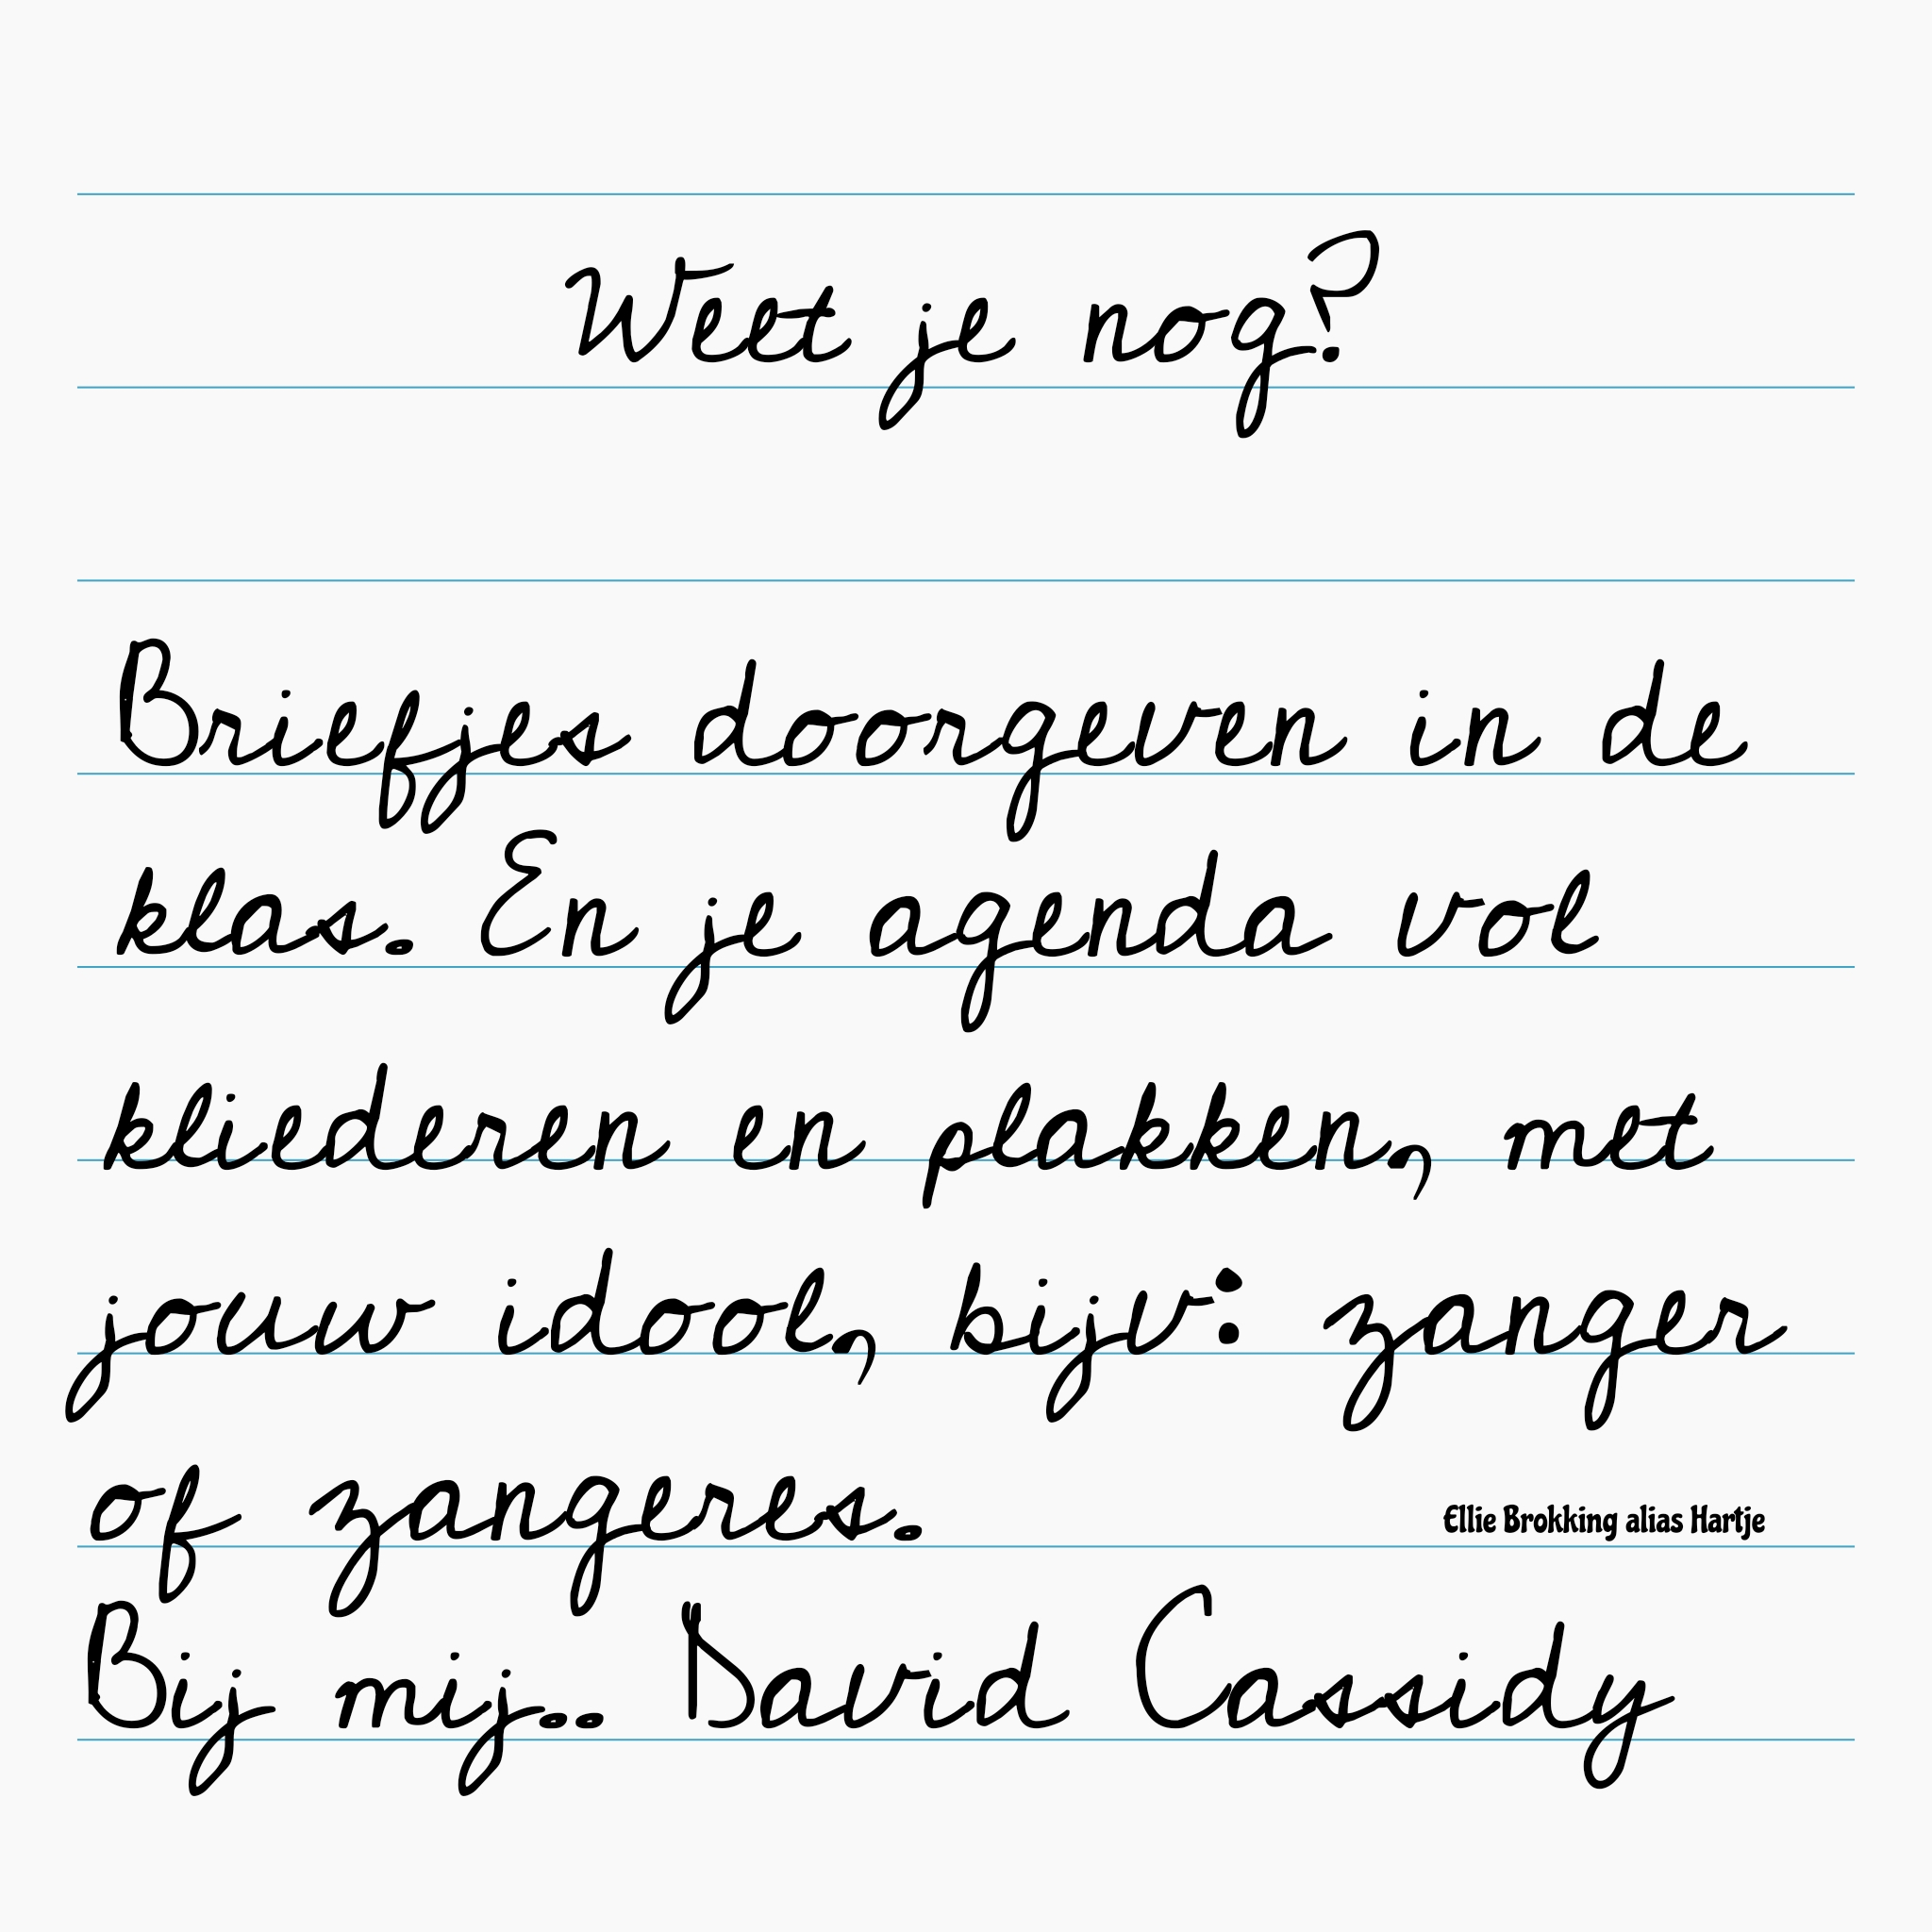 Weet je nog?
Briefjes doorgeven in de
klas. En je agenda vol
kliederen en plakken, met
jouw idool, bijv: zanger
of zangeres.
Ellie Brokking alias Hartje
Bij mij.. David Cassidy